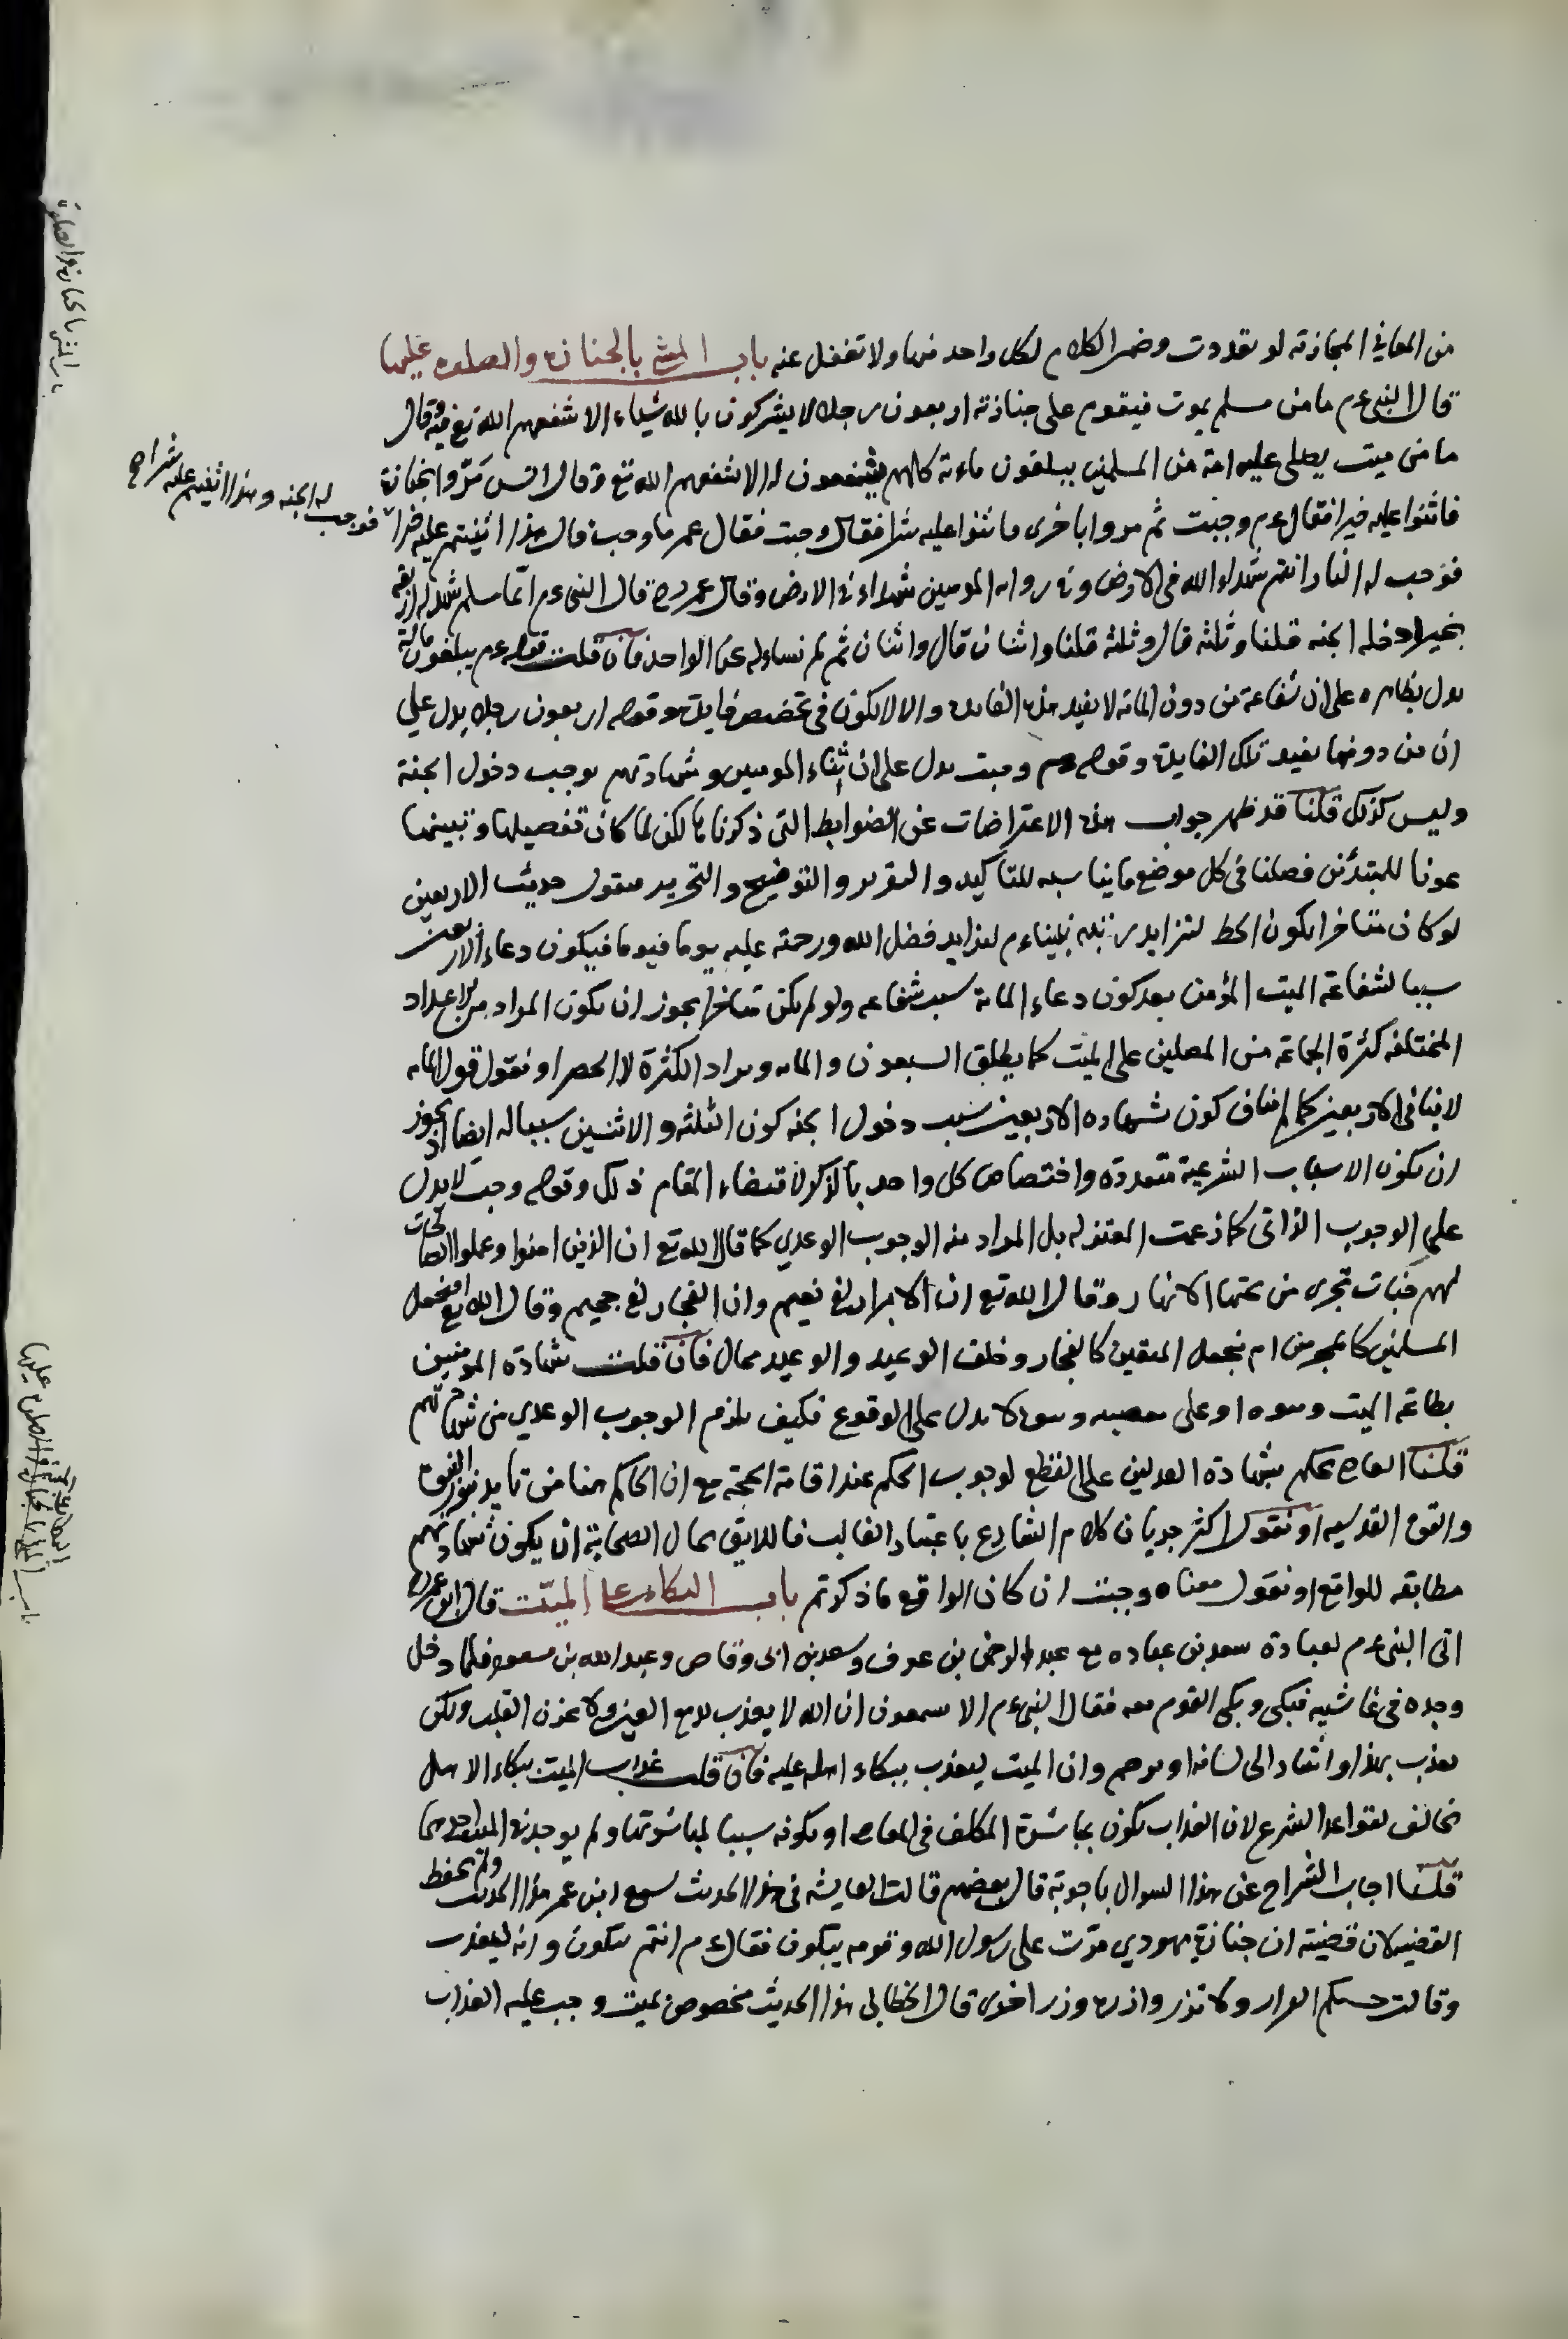 من المعاني المجازية لو تعددت وضمر الكلام لكل واحد منها ولا تغفل عنه باب المشي بالجنازة والصلوة عليها
قال النبي عم ما من مسلم يموت فيقوم على جنازته اربعون رجلا لا يشركون بالله شياء الا شفعهم الله تع فيه وقال
ما من ميت يصلى عليه امة من المسلمين يبلغون ماءة كلهم يشفعون له الا شفعهم الله تع وقال انس مرّوا بجنازة
فاثنوا عليه خيرا فقال عم وجبت ثم مروا باخرى فاثنوا عليه شرا فقال وجبت فقال عمر ما وجبت قال هذا اثنيتم عليه خيرا فوجب
له الجنه وهذا اثنيتم عليه شرا صح
فوجب له النار انتم شهداء الله في الارض وفي رواية المومنين شهداء في الارض وقال عمر رض قال النبي عم ايّما مسلم شهد له اربعة
بخير ادخله الجنة قلنا وثلثة قال وثلثة قلنا واثنان قال واثنان ثم لم نساءله عن الواحد فان قلت قوله عم يبلغون مائة
يدل بظاهره على ان شفاعة من دون المائة لا يفيد هذه الفايدة والا لا يكون في تخصيص فايدة وقوله اربعون رجلا يدل على
ان من دونها يفيد تلك الفايدة وقوله عم وجبت يدل على ان ثناء المومنين وشهادتهم يوجب دخول الجنة
وليس كذلك قلنا قد ظهر جواب هذه الاعتراضات عن الضوابط التي ذكرناها لكن لما كان تفصيلها وتبيينها
عونا للمبتدئين فصلنا في كل موضع ما يناسبه للتاكيد والتقرير والتوضيح والتحرير فنقول حديث الاربعين
لو كان متاخرا يكون الحط لتزايد رتبة نبينا عم لتزايد فضل الله ورحمته عليه يوما فيوما فيكون دعاء الاربعين
سببا لشفاعة الميت المؤمن بعد كون دعاء المائة سبب شفاعه ولو لم يكن متاخرا يجوز ان يكون المراد من الاعداد
المختلفة كثرة الجماعة من المصلين على الميت كما يطلق السبعون والمائة ويراد الكثرة لا الحصر او نقول قول المائة
لا ينافي الاربعين كما لم يناف كون شهادة الاربعين سبب دخول الجنة كون الثلثة والاثنين سببا له ايضا اذ يجوز
ان يكون الاسباب الشرعية متعددة واختصاص كل واحد بالذكر لاقتضاء المقام ذلك وقوله وجبت لا يدل
على الوجوب الذاتي كما زعمت المعتزلة بل المراد منه الوجوب الوعدي كما قال الله تع ان الذين امنوا وعملوا الصالحات
لهم جنات تجري من تحتها الانهار وقال الله تع ان الابرار لفي نعيم وان الفجار لفي جحيم وقال الله تع افنجعل
المسلمين كالمجرمين ام نجعل المتقين كالفجار وخلف الوعيد والوعيد محال فان قلت شهادة المومنين
بطاعة الميت او على لا يدل على الوقوع فكيف يلزم الوجوب الوعدي من شهادتهم
قلنا القاضي يحكم بشهادة العدلين على القطع لوجوب الحكم عند اقامة الحجة مع ان الحاكم هنا من تايد بنور النبوة
والقوة القدسيه او نقول اكثر جريان كلام الشارع باعتبار الغالب فاللايق بحال الصحابة ان يكون شهادتهم
مطابقه للواقع او نقول معناه وجبت ان كان الواقع ما ذكرتم باب البكاء على الميّت قال ابن عمر رض
اتى النبي عم لعيادة سعد بن عباده مع عبد الرحمن بن عوف وسعد بن ابي وقاص وعبد الله بن مسعود فلما دخل
وجده في غاشيه فبكى وبكى القوم معه فقال النبي عم الا تسمعون ان الله لا يعذب بدمع العين ولا بحزن القلب ولكن
يعذب بهذا واشار الى لسانه او يرحم وان الميت ليعذب ببكاء اهله عليه فان قلت عذاب الميت ببكاء الاهل
مخالف لقواعد الشرع لان العذاب يكون بمباشرة المكلف في المعاصي او بكونه سببا لمباشرتها ولم يوجد في الميت احدهما
قلنا اجاب الشراح عن هذا السوال باجوبة قال بعضهم قالت العايشه في هذا الحديث سمع ابن عمر هذا الحديث ولم يحفظ
القضيه لان قضيته ان جنازة يهودي مرّت على رسول الله وقومه يبكون فقال عم انتم تبكون وانه ليعذب
وقالت حسبكم القران ولا تزر وازرة وزر اخرى قال الخطابي هذا الحديث مخصوص بميت وجب عليه العذاب
باب المشي بالجنازة والصلوة
باب المشي بالجنازة والصلوة عليها